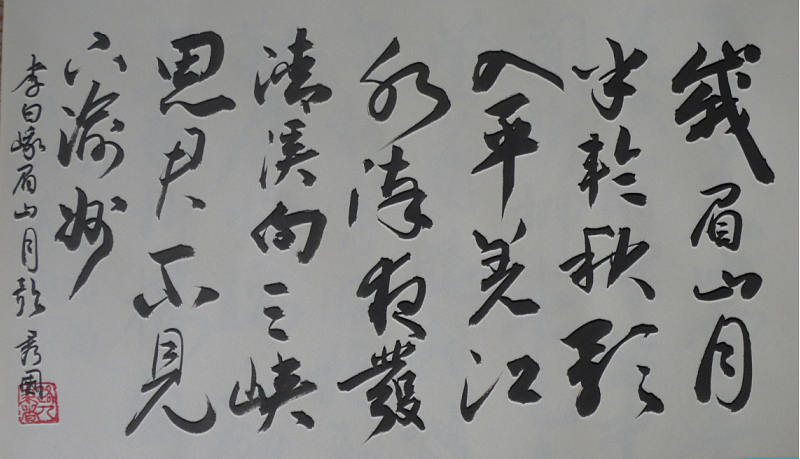 峩眉山月
半輪秋影
入平羌江
水流夜發
清溪向三峽
思君不見
下渝州
李白峨眉山月歌